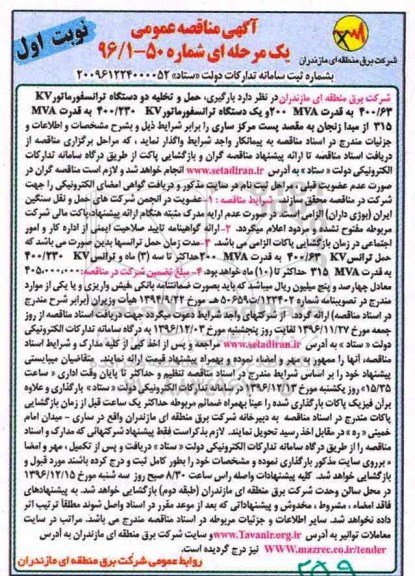 آگهی مناقصه عمومی
یک مرحله ای شماره ۵۰-۹۶/۱
نوبت اول
شرکت برق منطقه ای مازندران
بشماره ثبت سامانه تدارکات دولت «ستاد» ۲۰۰۹۶۱۲۲۴۰۰۰۰۵۲
شرکت برق منطقه ای مازندران در نظر دارد بارگیری، حمل و تخلیه دو دستگاه ترانسفورماتور KV
۴۰۰/۶۳ به قدرت MVA ۲۰۰ و یک دستگاه ترانسفورماتور KV ۴۰۰/۲۳۰ به قدرت MVA
۳۱۵ از مبدا زنجان به مقصد پست مرکز ساری را برابر شرایط ذیل و بشرح مشخصات و اطلاعات و
جزئیات مندرج در اسناد مناقصه به پیمانکار واجد شرایط واگذار نماید، که مراحل برگزاری مناقصه از
دریافت اسناد مناقصه تا ارائه پیشنهاد مناقصه گران و بازگشایی پاکت از طریق درگاه سامانه تدارکات
الکترونیکی دولت «ستاد» به آدرس www.setadiran.ir انجام خواهد شد و لازم است مناقصه گران در
صورت عدم عضویت قبلی، مراحل ثبت نام در سایت مذکور و دریافت گواهی امضای الکترونیکی را جهت
شرکت در مناقصه محقق سازند. شرایط مناقصه: ۱- عضویت در انجمن شرکت های حمل و نقل سنگین
ایران (بوژی داران) الزامی است در صورت عدم ارایه مدرک مثبته هنگام ارائه پیشنهاد، پاکت مالی شرکت
مربوطه مفتوح نشده و مردود اعلام میگردد. ۲- ارائه گواهینامه تایید صلاحیت ایمنی از اداره کار و امور
اجتماعی در زمان بازگشایی پاکات الزامی می باشد. ۳- مدت زمان حمل ترانسها بدین صورت می باشد که
حمل ترانس KV ۴۰۰/۶۳ به قدرت MVA ۲۰۰ حداکثر تا سه (۳) ماه و ترانس KV ۴۰۰/۲۳۰
به قدرت MVA ۳۱۵ حداکثر تا (۱۰) ماه خواهد بود. ۴- مبلغ تضمین شرکت در مناقصه: ۴۰۵،۰۰۰،۰۰۰
معادل چهارصد و پنج میلیون ریال میباشد که باید بصورت ضمانتنامه بانکی فیش واریزی و یا یکی از موارد
مندرج در تصویبنامه شماره ۱۲۳۴۰۲/ت۵۰۶۵۹هـ مورخ ۱۳۹۴/۹/۲۲ هیأت وزیران (برابر شرح مندرج
در اسناد مناقصه) ارائه گردد. از شرکتهای واجد شرایط دعوت میگردد جهت دریافت اسناد مناقصه از روز
جمعه مورخ ۱۳۹۶/۱۱/۲۷ لغایت روز پنجشنبه مورخ ۱۳۹۶/۱۲/۰۳ به درگاه سامانه تدارکات الکترونیکی
دولت «ستاد» به آدرس www.setadiran.ir مراجعه و پس از اخذ کپی از کلیه مدارک و شرایط اسناد
مناقصه، آنها را ممهور به مهر و امضاء نموده و بهمراه پیشنهاد قیمت ارائه نمایند. متقاضیان میبایستی
پیشنهاد خود را بر اساس شرایط مندرج در اسناد مناقصه تنظیم و حداکثر تا پایان وقت اداری «ساعت
۱۵/۳۵» روز یکشنبه مورخ ۱۳۹۶/۱۲/۱۳ در سامانه تدارکات الکترونیکی دولت «ستاد» بارگذاری و علاوه
برآن فیزیک پاکات بارگذاری شده را عینا بهمراه ضمائم مربوطه حداکثر یک ساعت قبل از زمان بازگشایی
پاکات مندرج در اسناد مناقصه به دبیرخانه شرکت برق منطقه ای مازندران واقع در ساری - میدان امام
خمینی «ره» در مقابل اخذ رسید تحویل نمایند. لازم بذکر است فقط پیشنهاد شرکتهائی که مدارک و اسناد
مناقصه را از طریق درگاه سامانه تدارکات الکترونیکی دولت «ستاد» دریافت و پس از تکمیل، مهر و امضا
بر روی سایت مذکور بارگذاری نموده و مشخصات خود را بطور کامل ثبت و درج کرده باشند مورد قبول و
بازگشایی خواهد شد. کلیه پیشنهادات واصله راس ساعت ۸/۳۰ صبح روز سه شنبه مورخ ۱۳۹۶/۱۲/۱۵
در محل سالن وحدت شرکت برق منطقه ای مازندران (طبقه دوم) بازگشایی خواهد شد. به پیشنهادهای
فاقد امضاء، مشروط، مخدوش و پیشنهاداتی که بعد از موعد مقرر در اسناد واصل شوند مطلقاً ترتیب اثر
داده نخواهد شد. سایر اطلاعات و جزئیات مربوطه در اسناد مناقصه مندرج می باشد. مراتب در سایت
معاملات توانیر به آدرس www.Tavanir.org.ir و سایت شرکت برق منطقه ای مازندران به آدرس
WWW.mazrec.co.ir/tender نیز درج گردیده است.
روابط عمومی شرکت برق منطقه ای مازندران